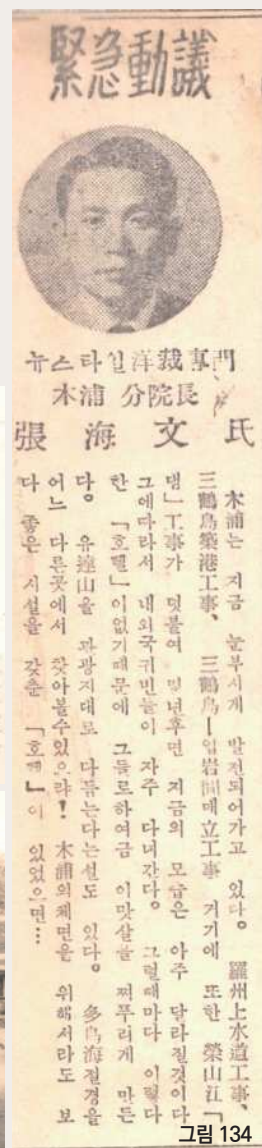 緊急動議
뉴스타일洋裁專門
木浦 分院長
張海文氏
木浦는 지금 눈부시게 발전되어가고 있다。 羅州上水道工事、
三鶴島築港工事、 三鶴島—입岩間매立工事 거기에 또한 榮山江「
댐」工事가 덧붙여 몇년후면 지금의 모습은 아주 달라질것이다
그에따라서 내외국귀빈들이 자주 다녀간다。 그럴때마다 이렇다
한 「호텔」이없기때문에 그들로하여금 이맛살을 찌푸리게 만든
다。 유達山을 관광지대로 다듬는다는설도 있다。 多島海절경을
어느 다른곳에서 찾아볼수있으랴! 木浦의체면을 위해서라도 보
다 좋은 시설을 갖춘 「호텔」이 있었으면…
그림 134